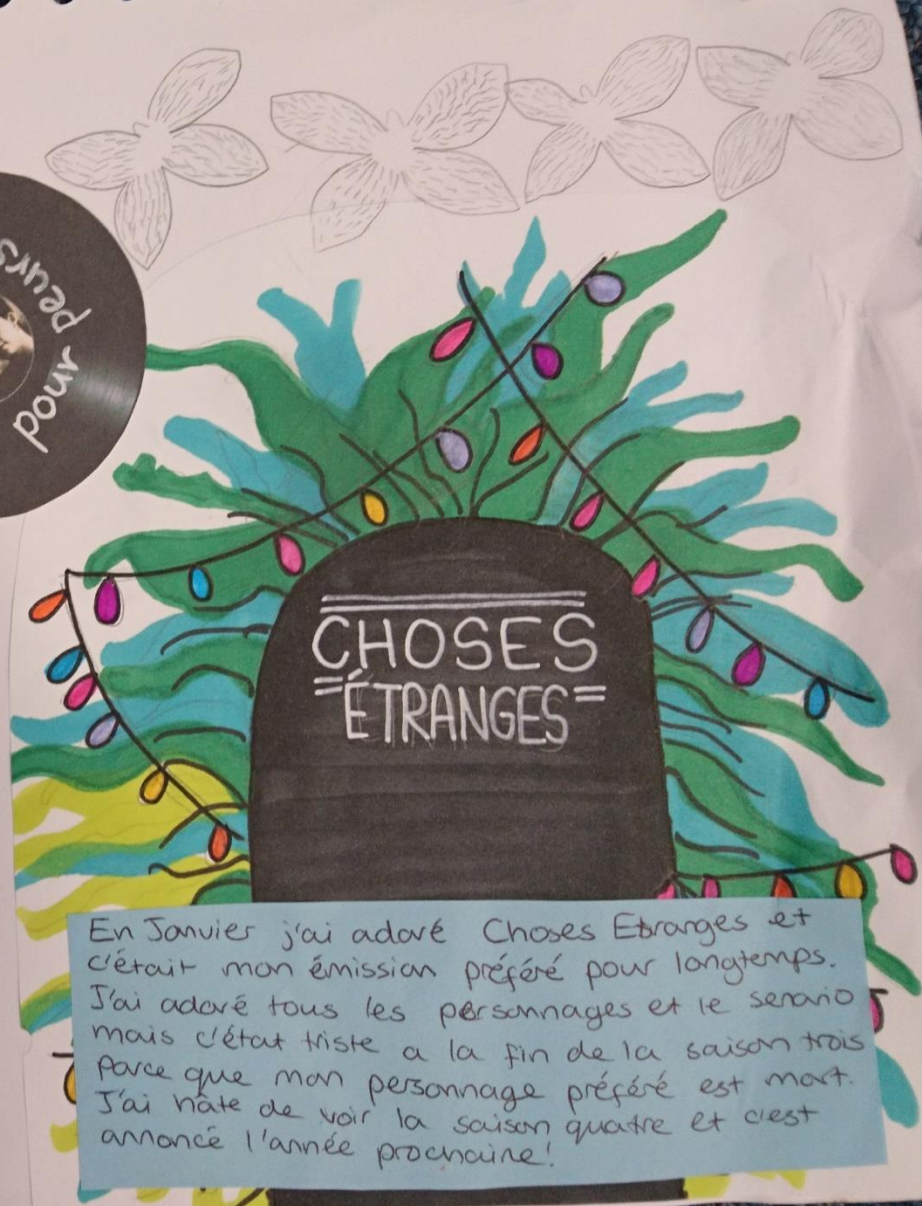 pour peurs
CHOSES
ÉTRANGES
En Janvier j'ai adoré Choses Etranges et
c'était mon émission préféré pour longtemps.
J'ai adoré tous les personnages et le senario
mais c'état triste a la fin de la saison trois
Parce que mon personnage préféré est mort.
J'ai hâte de voir la saison quatre et c'est
annoncé l'année prochaine!